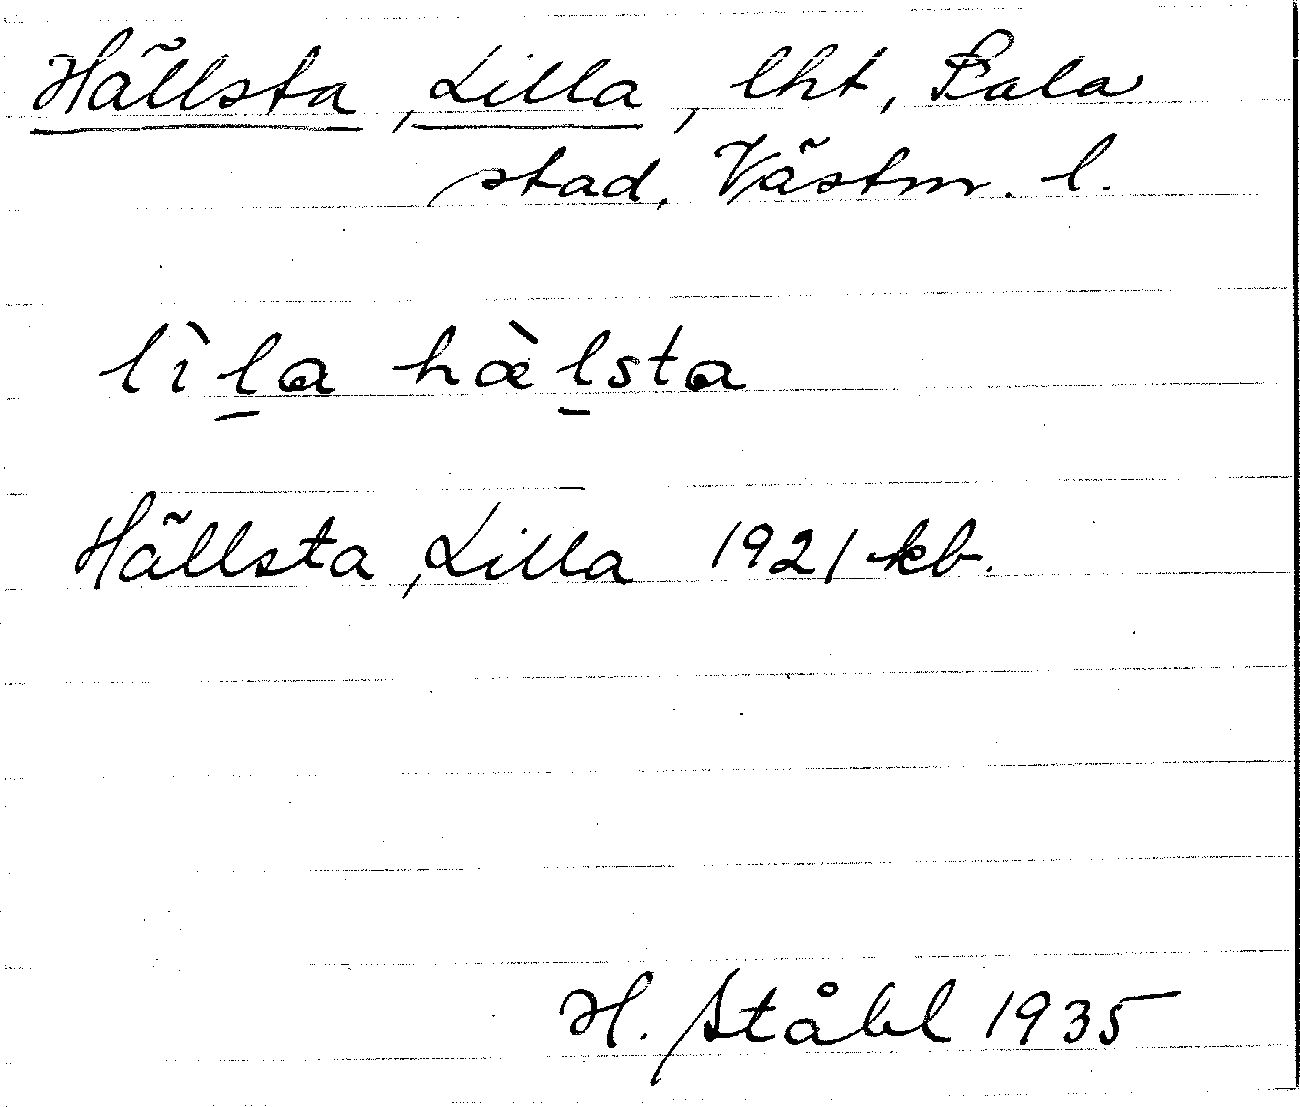 Hällsta, Lilla, lht, Sala
stad, Västm. l.
lìl̠a hæ̀l̠sta
Hällsta, Lilla 1921 kb.
H. Ståhl 1935